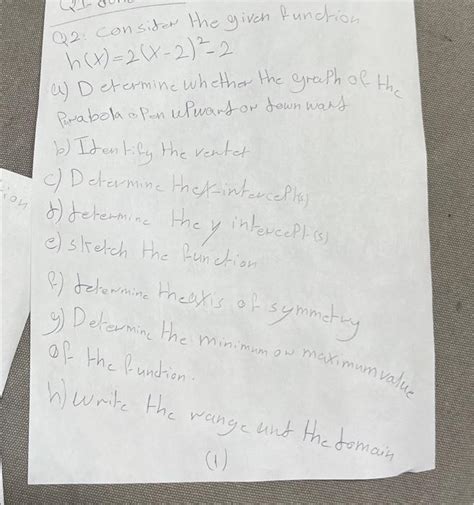 Q2. Consider the given function
h(x)=2(x-2)²-2
a) Determine whether the graph of the
Parabola open upward or downward
b) Identify the vertet
c) Determine the x-intercept(s)
d) determine the y intercept(s)
e) sketch the function
f) determine the axis of symmetry
g) Determine the minimum or maximum value
of the function.
h) write the range and the domain
(1)
ion